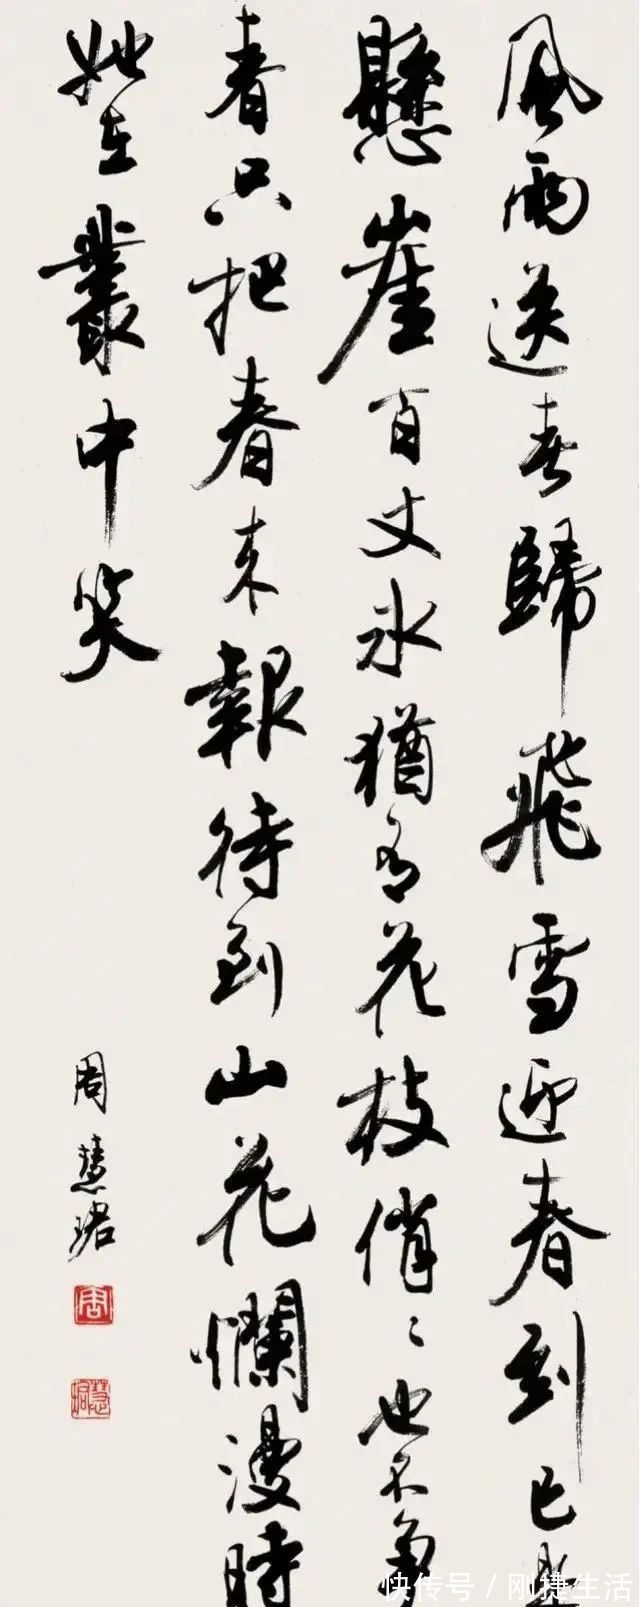 風雨送春歸飛雪迎春到已是
懸崖百丈冰猶有花枝俏〻也不爭
春只把春来報待到山花爛漫時
她在叢中笑
周慧珺
周
慧珺
快传号 / 刚捷生活